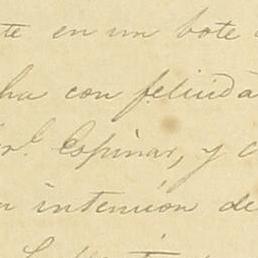 te en un bote
ha con felicida
Espinar, y
n intención de